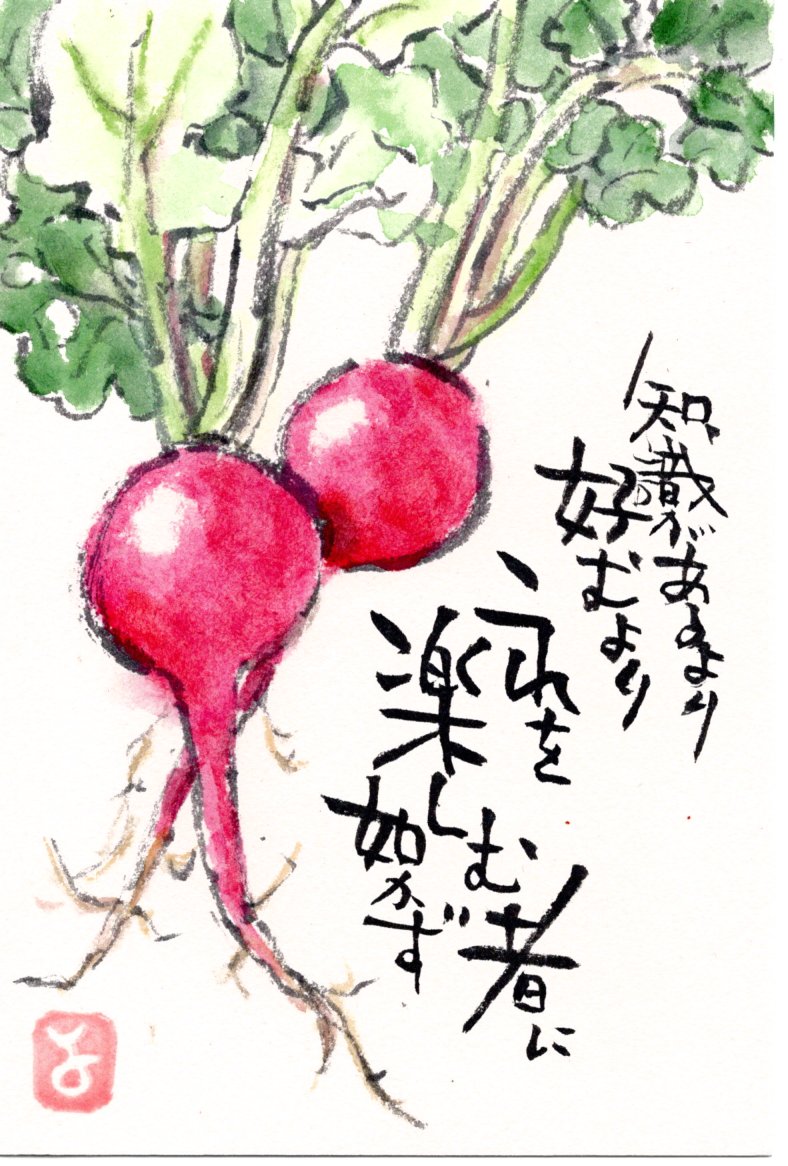 知識があるより
好むより
これを
楽しむ者に
如かず